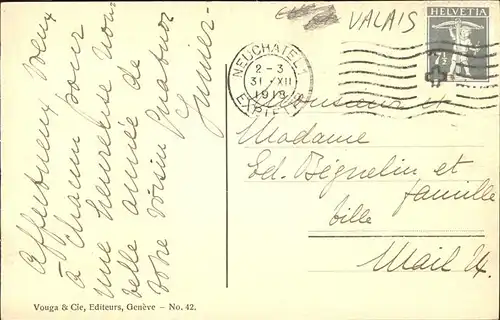 VALAIS
HELVETIA
7½
NEUCHATEL 1
2-3
31.XII
1918
EXP. LETT.
Monsieur et
Madame
Ed. Béguelin et
famille
Ville
Mail 4.
Affectueux voeux
à chacun pour
une heureuse nou-
velle année de
votre voisin
Junier-
Vouga & Cie, Editeurs, Genève – No. 42.